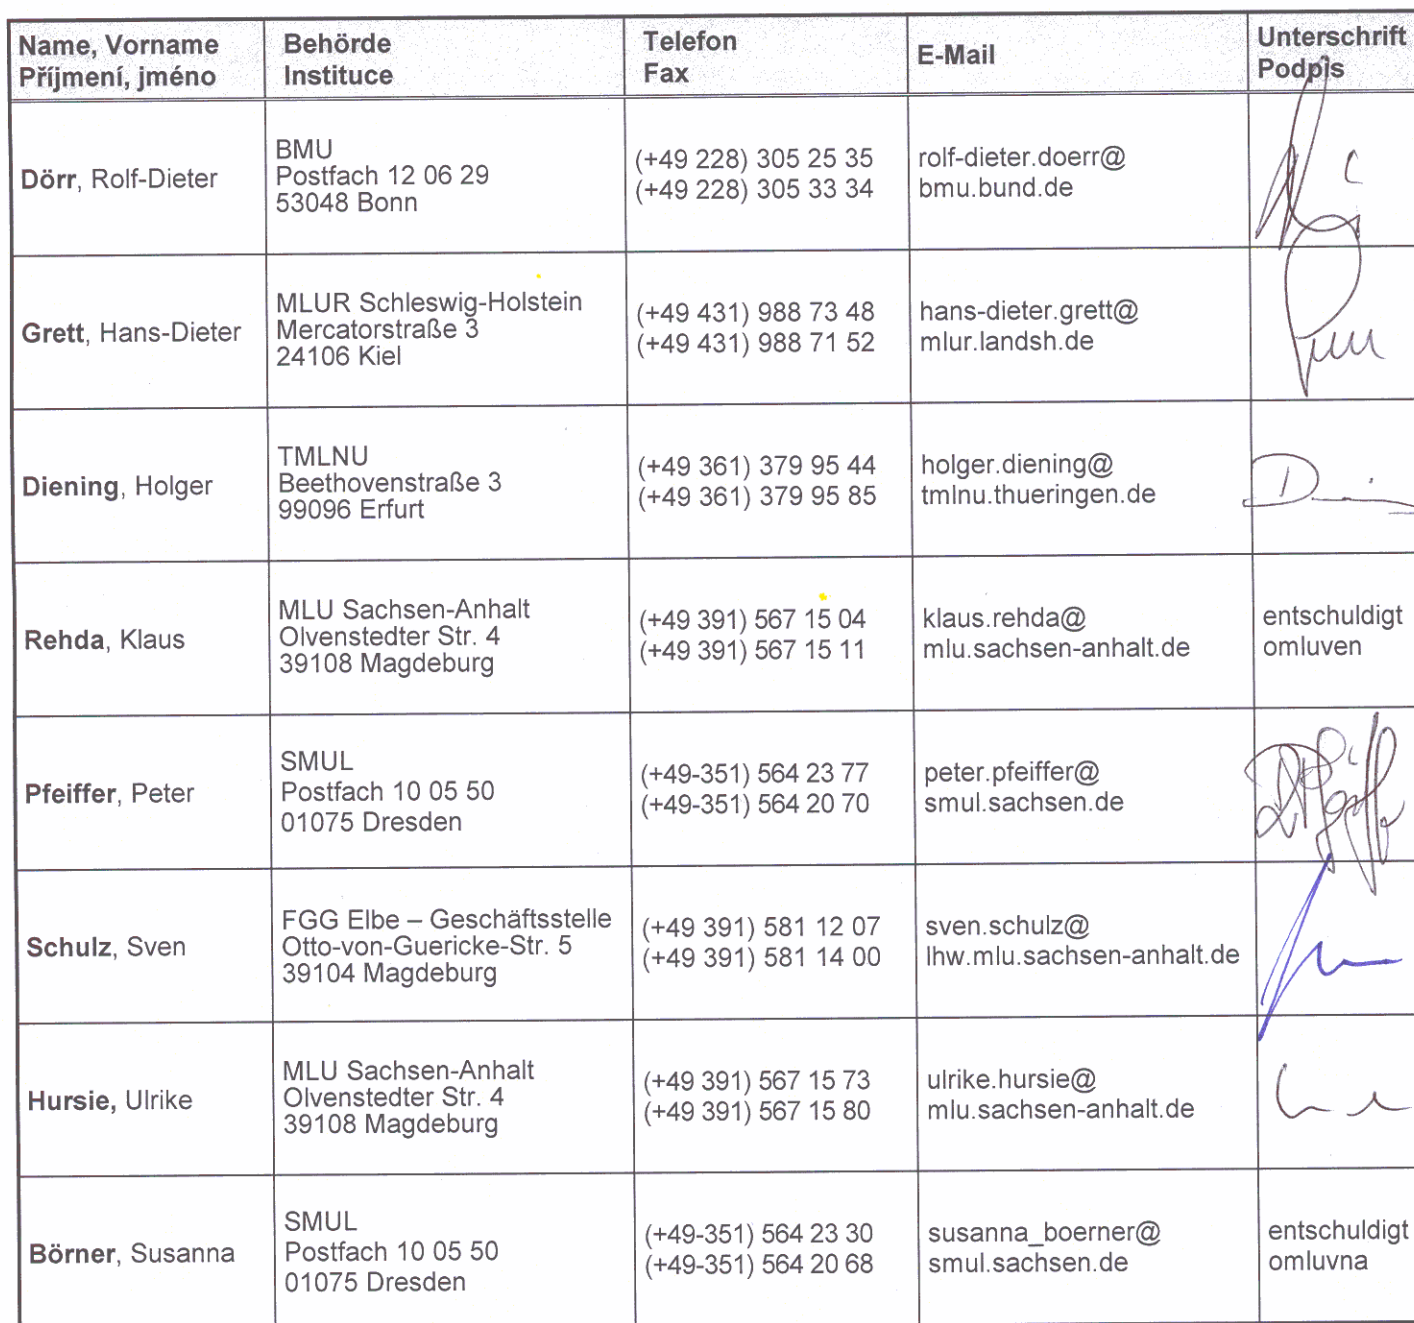 Name, Vorname
Příjmení, jméno
Behörde
Instituce
Telefon
Fax
E-Mail
Unterschrift
Podpis
Dörr, Rolf-Dieter
BMU
Postfach 12 06 29
53048 Bonn
(+49 228) 305 25 35
(+49 228) 305 33 34
rolf-dieter.doerr@
bmu.bund.de
Grett, Hans-Dieter
MLUR Schleswig-Holstein
Mercatorstraße 3
24106 Kiel
(+49 431) 988 73 48
(+49 431) 988 71 52
hans-dieter.grett@
mlur.landsh.de
Diening, Holger
TMLNU
Beethovenstraße 3
99096 Erfurt
(+49 361) 379 95 44
(+49 361) 379 95 85
holger.diening@
tmlnu.thueringen.de
Rehda, Klaus
MLU Sachsen-Anhalt
Olvenstedter Str. 4
39108 Magdeburg
(+49 391) 567 15 04
(+49 391) 567 15 11
klaus.rehda@
mlu.sachsen-anhalt.de
entschuldigt
omluven
Pfeiffer, Peter
SMUL
Postfach 10 05 50
01075 Dresden
(+49-351) 564 23 77
(+49-351) 564 20 70
peter.pfeiffer@
smul.sachsen.de
Schulz, Sven
FGG Elbe – Geschäftsstelle
Otto-von-Guericke-Str. 5
39104 Magdeburg
(+49 391) 581 12 07
(+49 391) 581 14 00
sven.schulz@
lhw.mlu.sachsen-anhalt.de
Hursie, Ulrike
MLU Sachsen-Anhalt
Olvenstedter Str. 4
39108 Magdeburg
(+49 391) 567 15 73
(+49 391) 567 15 80
ulrike.hursie@
mlu.sachsen-anhalt.de
Börner, Susanna
SMUL
Postfach 10 05 50
01075 Dresden
(+49-351) 564 23 30
(+49-351) 564 20 68
susanna_boerner@
smul.sachsen.de
entschuldigt
omluvna